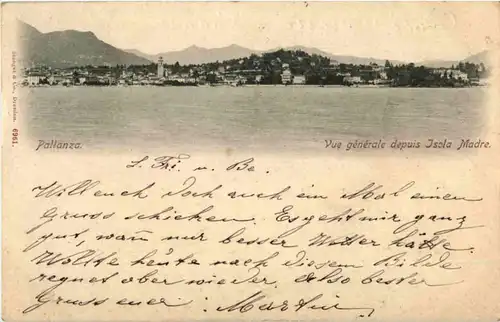 Pallanza.
Vue générale depuis Isola Madre.
6961.
L. Fri. u. Be.
Will euch doch auch ein Mal einen
Gruss schicken. Es geht mir ganz
gut, wänn nur besser Wetter hätte.
Wollte heute nach diesem Bilde
regnet aber wieder. Also bester
Gruss euer Martin